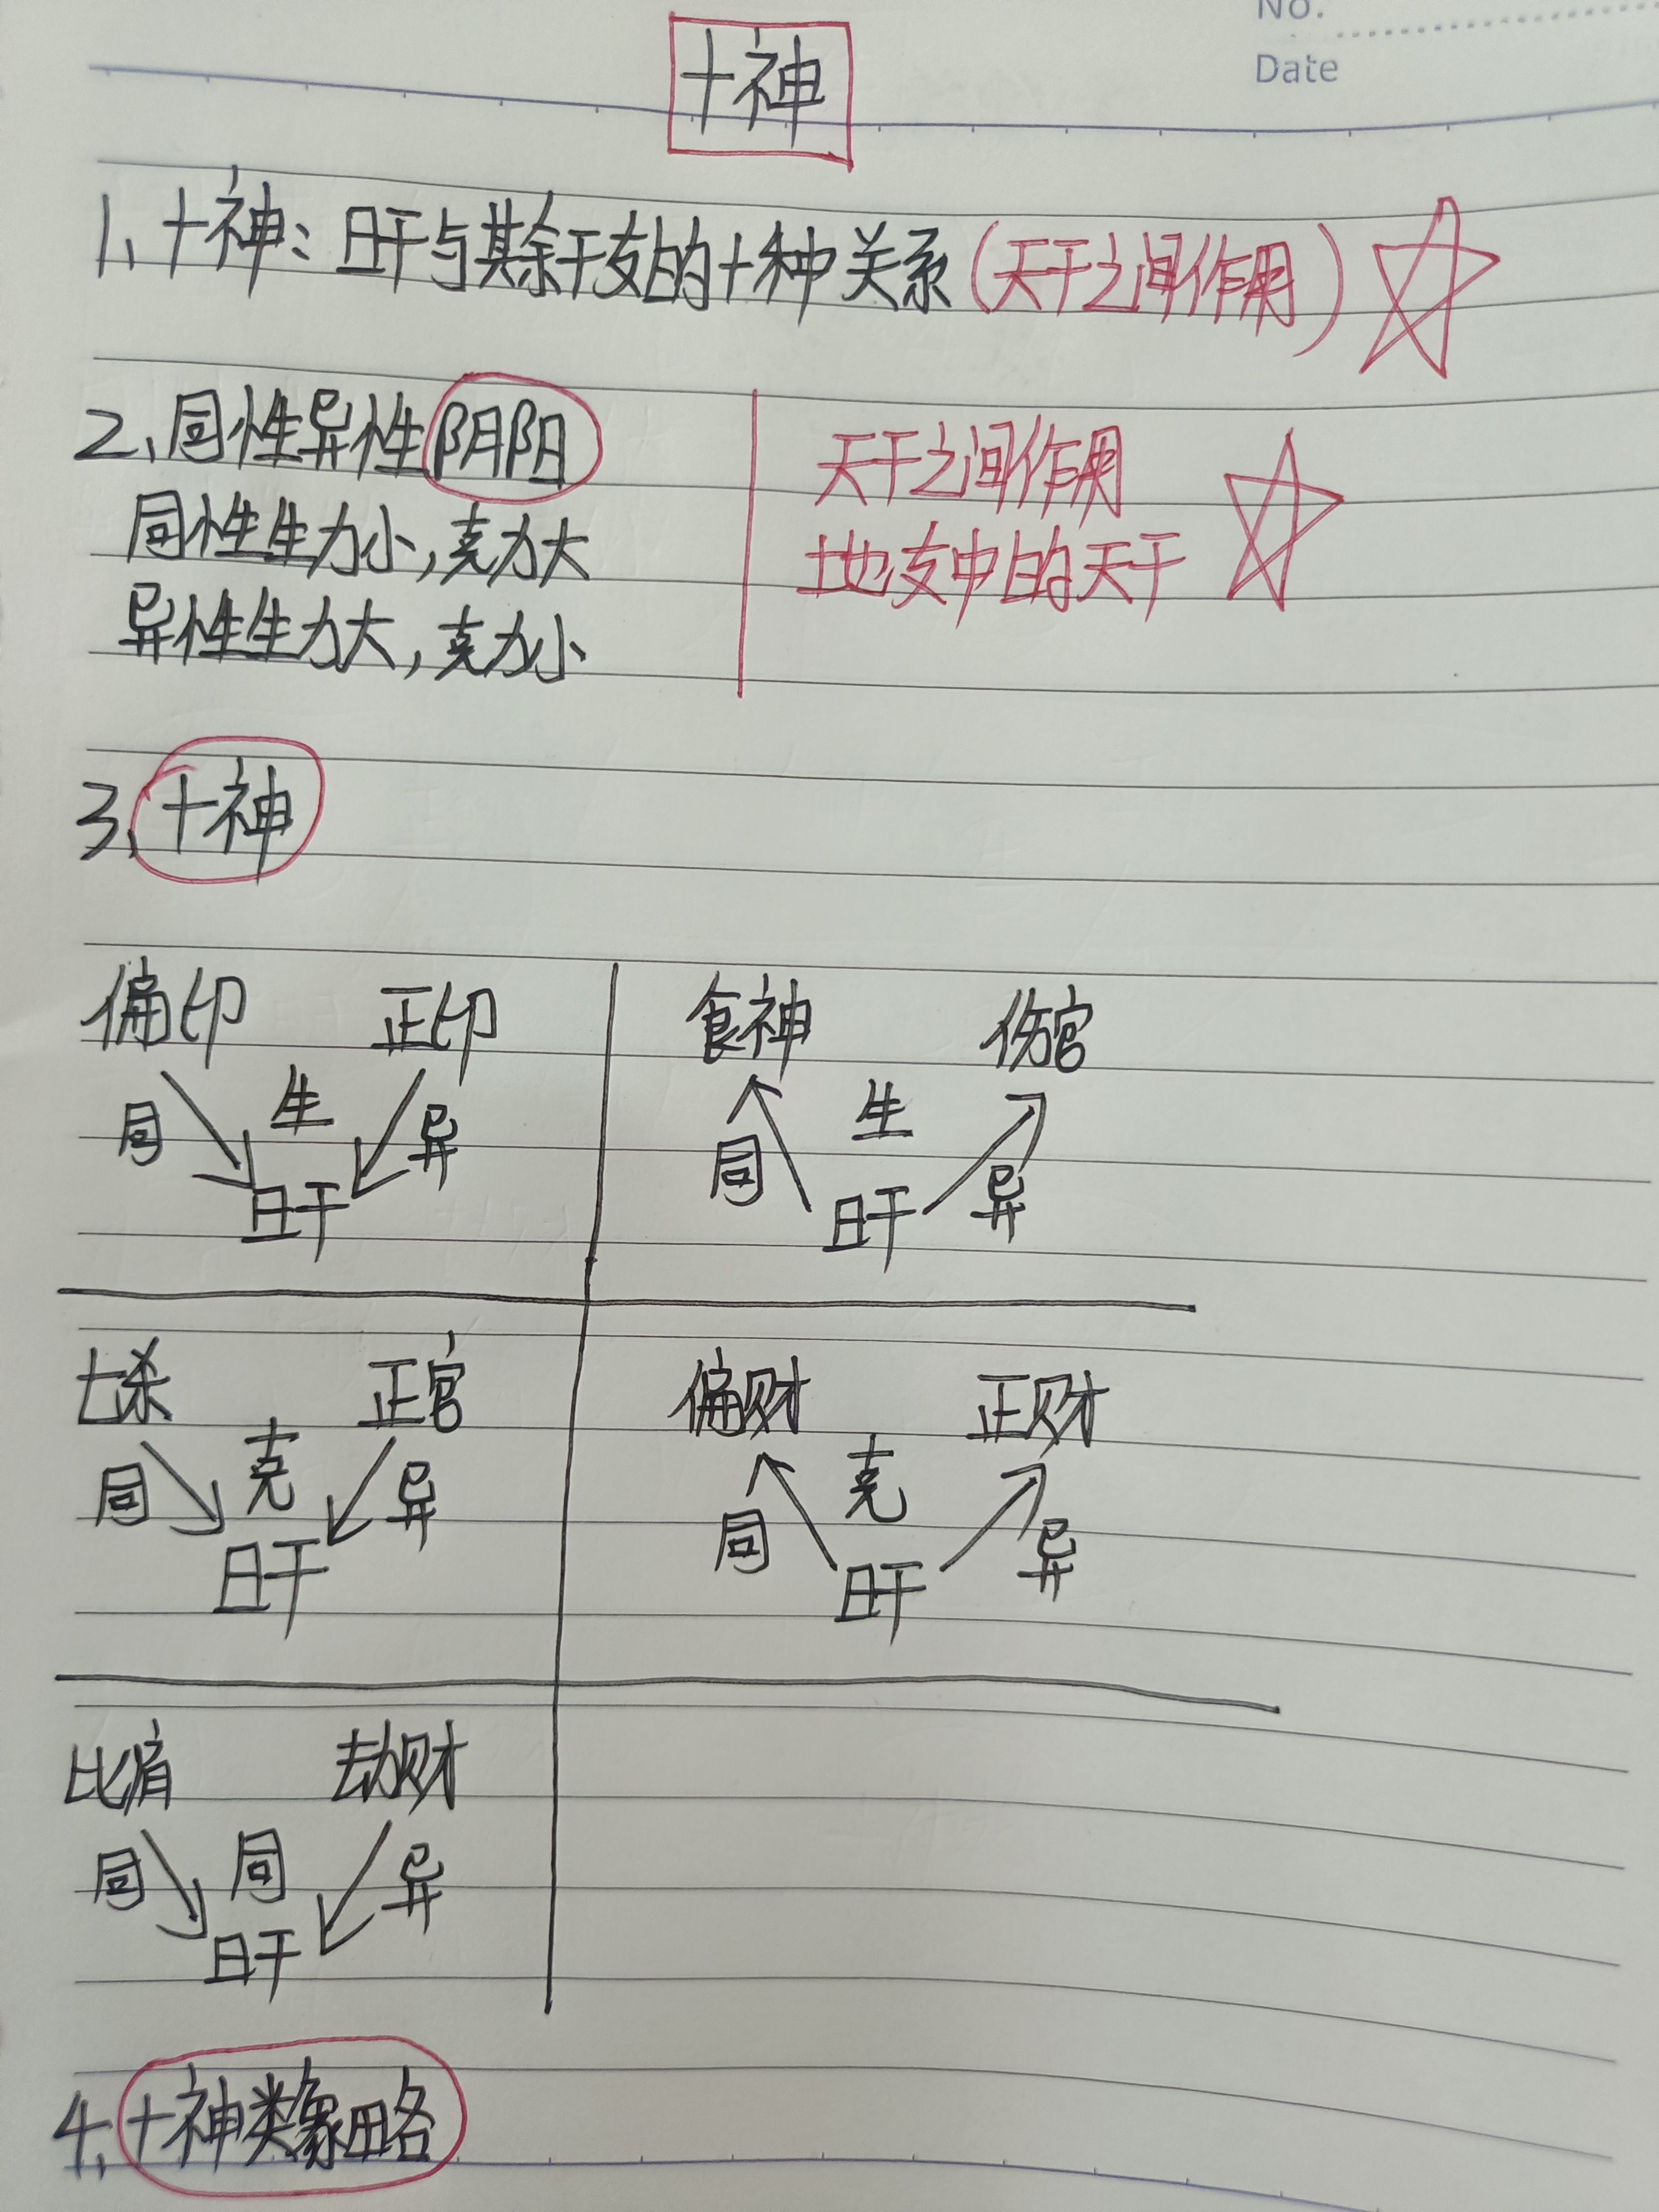 No.
Date
十神
1、十神：日干与其余干支的十种关系（天干之间作用）
2、同性异性阴阳
同性生力小，克力大
异性生力大，克力小
天干之间作用
地支中的天干
3、十神
偏印 正印
同 生 异
日干
食神 伤官
同 生 异
日干
七杀 正官
同 克 异
日干
偏财 正财
同 克 异
日干
比肩 劫财
同 同 异
日干
4、十神类象略